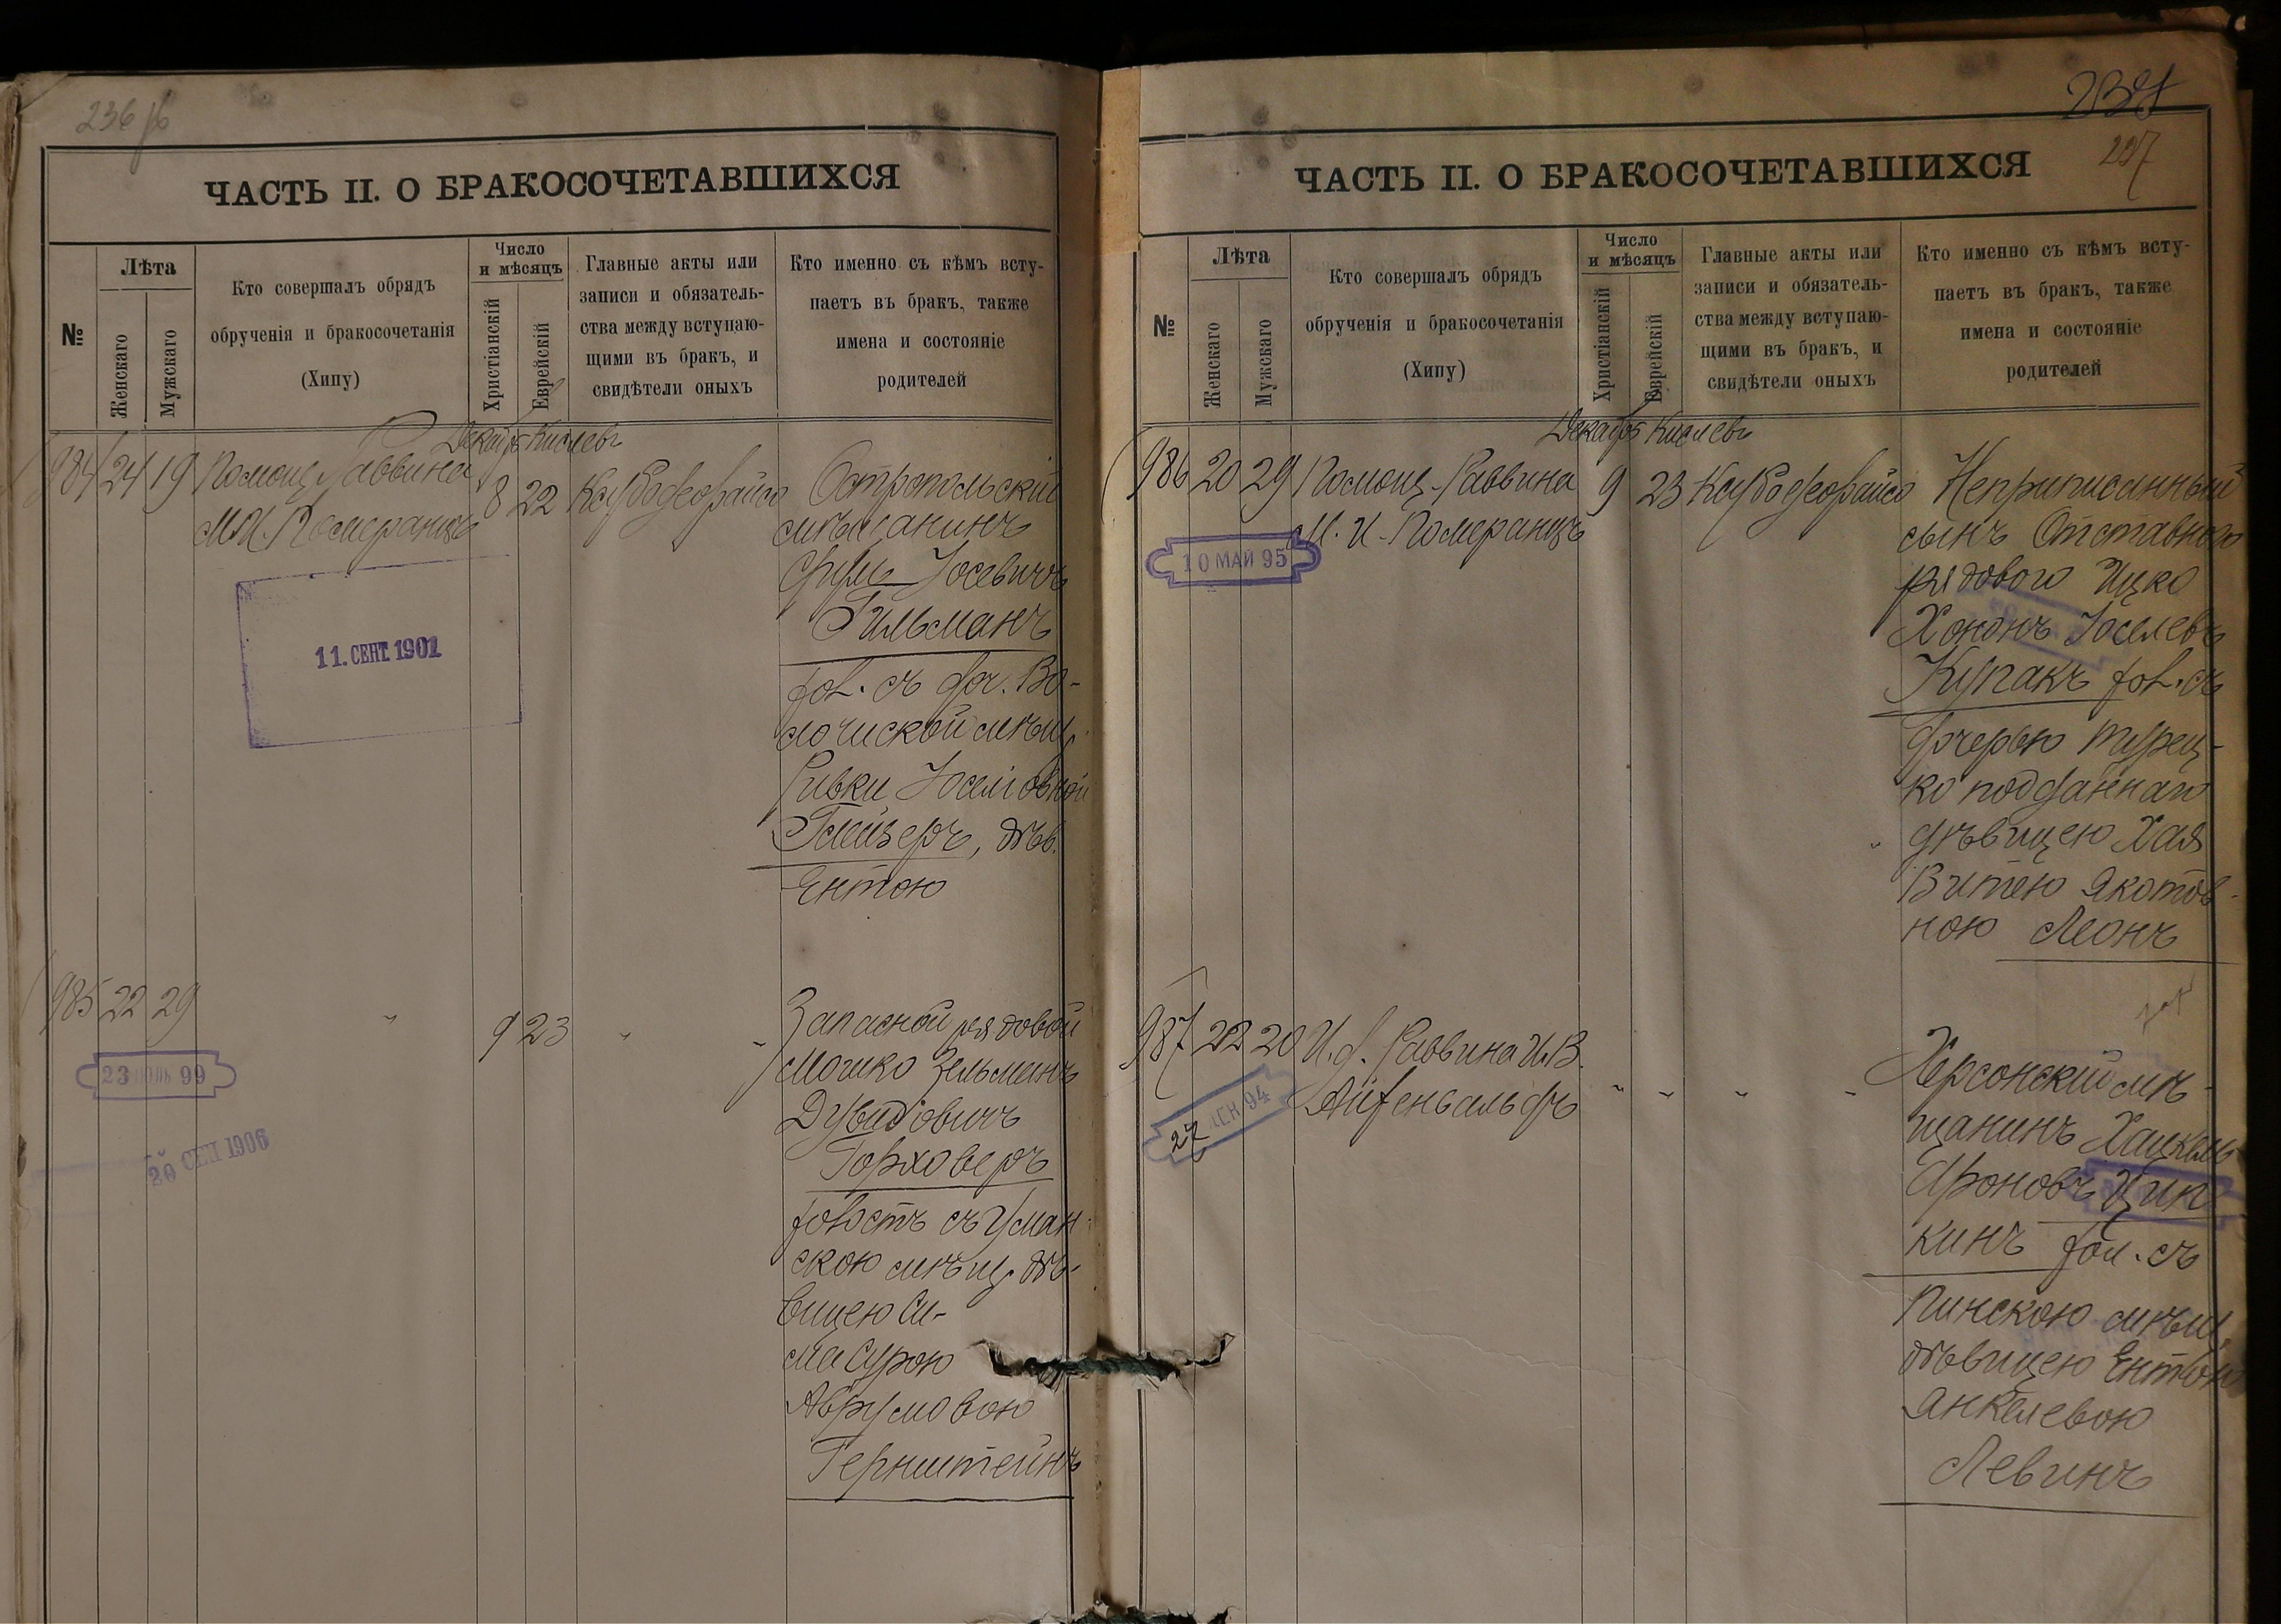 236 об
ЧАСТЬ II. О БРАКОСОЧЕТАВШИХСЯ
№
Лѣта
Женскаго
Мужскаго
Кто совершалъ обрядъ
обрученія и бракосочетанія
(Хипу)
Число
и мѣсяцъ
Христіанскій
Еврейскій
Главные акты или
записи и обязатель-
ства между вступаю-
щими въ бракъ, и
свидѣтели оныхъ
Кто именно съ кѣмъ всту-
паетъ въ бракъ, также
имена и состояніе
родителей
Декабр Кислевъ
984 24 19 Помощ. Раввина 8 22
М. И. Померанцъ
11. СЕНТ. 1901
Остропольскій
мѣщанинъ
Фроим Іосевичъ
Гильманъ
зов. съ доч. Во-
лочиской мѣщ.
Ривки Іоселіовной
Глейзеръ, дѣв.
Ентою
985 22 29 " 9 23 " "
23 99
20 СЕН 1906
Запасной рядовой
Мошко Зельманъ
Дувидовичъ
Горховеръ
холостъ съ Уман-
скою мѣщ. дѣ-
вицею Си-
ма Сурою
Аврумовою
Гернштейнъ
237
ЧАСТЬ II. О БРАКОСОЧЕТАВШИХСЯ
№
Лѣта
Женскаго
Мужскаго
Кто совершалъ обрядъ
обрученія и бракосочетанія
(Хипу)
Число
и мѣсяцъ
Христіанскій
Еврейскій
Главные акты или
записи и обязатель-
ства между вступаю-
щими въ бракъ, и
свидѣтели оныхъ
Кто именно съ кѣмъ всту-
паетъ въ бракъ, также
имена и состояніе
родителей
Декабр Кислевъ
986 20 29 Помощ. Раввина 9 23
М. И. Померанцъ
10 МАЙ 95
Неприписанный
сынъ Отставного
рядового Ицко
Хононъ Іоселевъ
Купакъ хол. съ
дочерью турец-
ко подданнаго
дѣвицею Хая
Витею Якотов-
ною Леонъ
987 22 20 И. д. Раввина И. В. " " " "
Айзенвальдъ
27 СЕН 94
Херсонскій мѣ-
щанинъ Хацкель
Ароновъ Цип
кинъ хол. съ
Пинскою мѣщ.
дѣвицею Ентою
Янкелевою
Левинъ